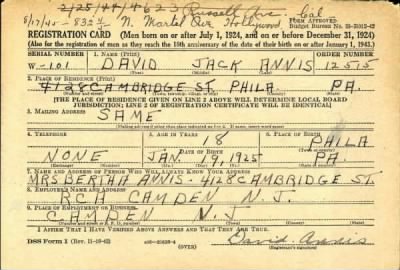 2/25/44/4623 Russell Av. Cal
8/17/45-832½ N. Martel Ave Hollywood
FORM APPROVED
Budget Bureau No. 33-R012-42
REGISTRATION CARD—(Men born on or after July 1, 1924, and on or before December 31, 1924)
(Also for the registration of men as they reach the 18th anniversary of the date of their birth on or after January 1, 1943.)
SERIAL NUMBER 1. NAME (Print) ORDER NUMBER
W-101 DAVID JACK ANNIS 12515
(First) (Middle) (Last)
2. PLACE OF RESIDENCE (Print)
4128 CAMBRIDGE ST. PHILA PA.
[THE PLACE OF RESIDENCE GIVEN ON LINE 2 ABOVE WILL DETERMINE LOCAL BOARD
JURISDICTION; LINE 2 OF REGISTRATION CERTIFICATE WILL BE IDENTICAL]
3. MAILING ADDRESS
SAME
[Mailing address if other than place indicated on line 2. If same, insert word same]
4. TELEPHONE 5. AGE IN YEARS 6. PLACE OF BIRTH
18 PHILA
DATE OF BIRTH
NONE JAN. 9, 1925 PA.
7. NAME AND ADDRESS OF PERSON WHO WILL ALWAYS KNOW YOUR ADDRESS
MRS BERTHA ANNIS - 4128 CAMBRIDGE ST.
8. EMPLOYER'S NAME AND ADDRESS
RCA CAMDEN N.J.
9. PLACE OF EMPLOYMENT OR BUSINESS
CAMDEN N.J
I AFFIRM THAT I HAVE VERIFIED ABOVE ANSWERS AND THAT THEY ARE TRUE.
DSS Form 1 (Rev. 11-16-42) (OVER) David Annis
(Registrant's signature)